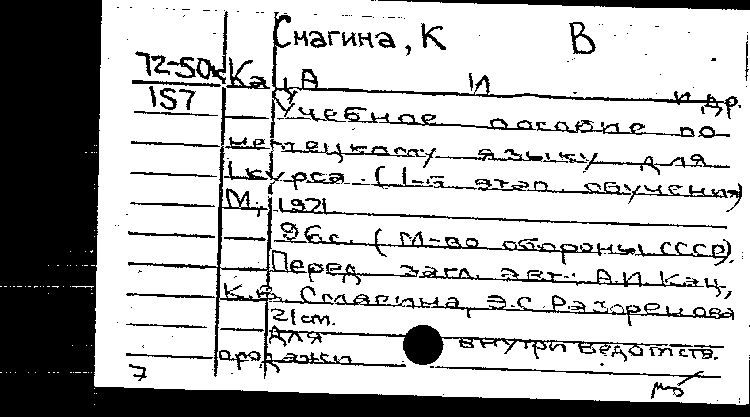 Смагина, К В
72-50к Кац, А И и др.
157 Учебное пособие по
немецкому языку для
I курса. (I-й этап обучения)
М., 1971
96с. (М-во обороны СССР).
Перед загл. авт.: А.И. Кац,
К.В. Смагина, Э.С.
21 cm.
Для внутриведомств.
продажи
7